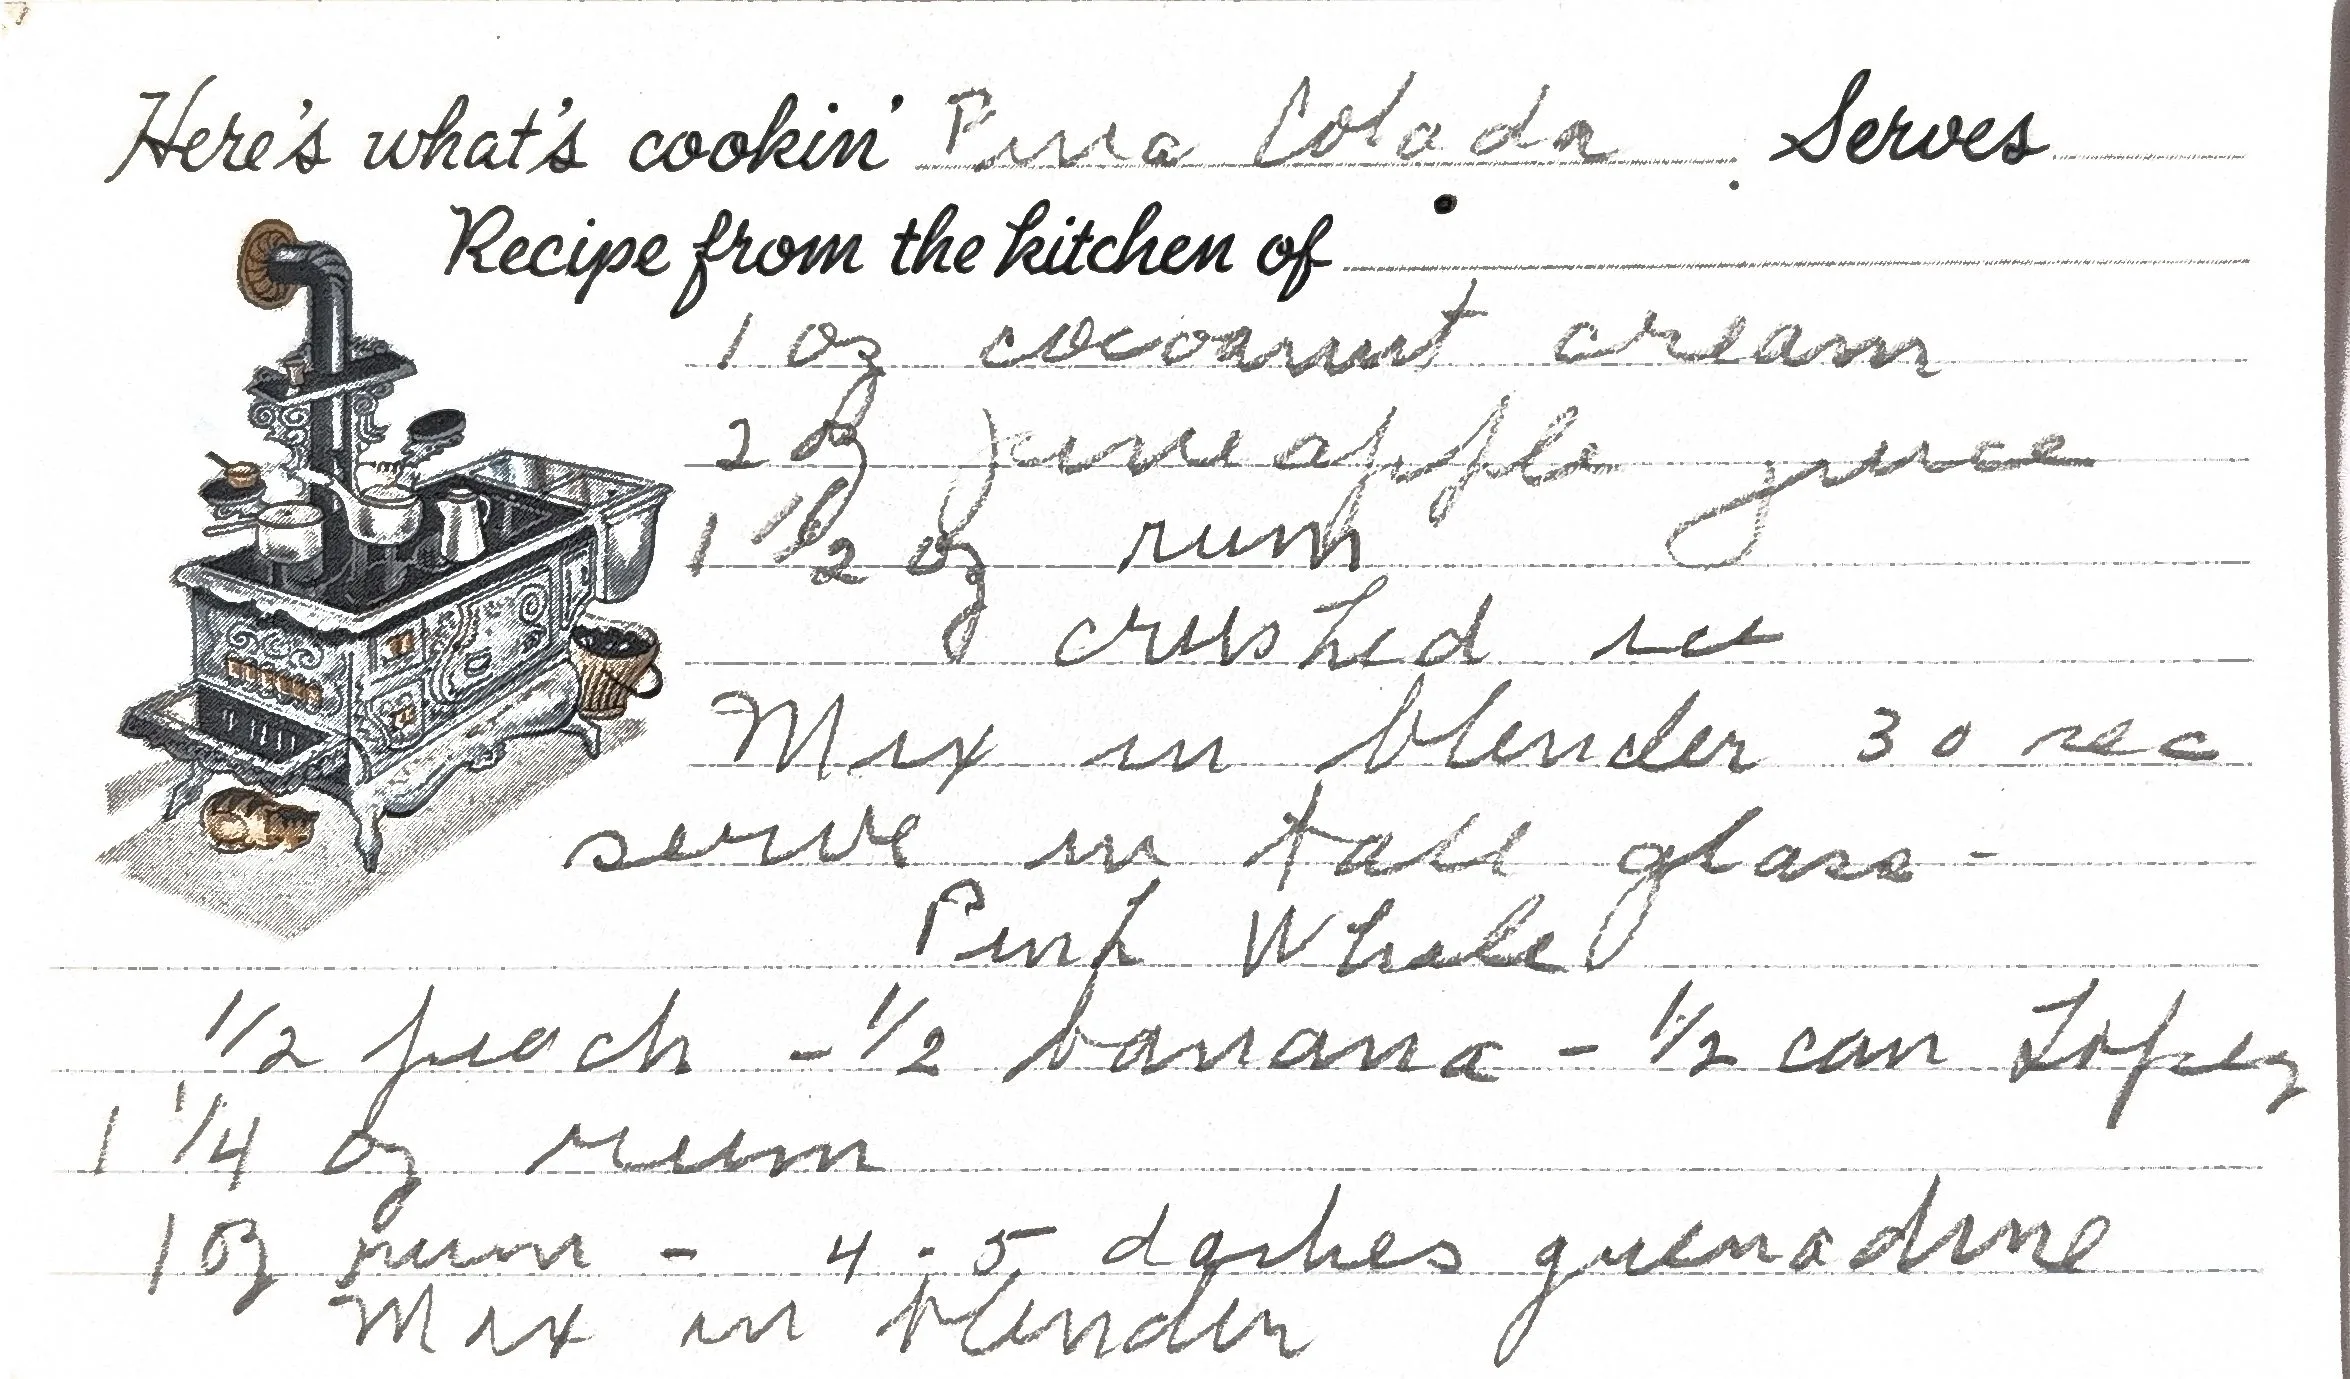 Here's what's cookin' Pina Colada Serves
Recipe from the kitchen of
1 oz cocoanut cream
2 oz pineapple juice
1 1/2 oz rum
crushed ice
Mix in blender 30 sec
serve in tall glass -
Pink Whale
1/2 peach - 1/2 banana - 1/2 can Lopez
1 1/4 oz rum
1 oz rum - 4-5 dashes grenadine
Mix in blender